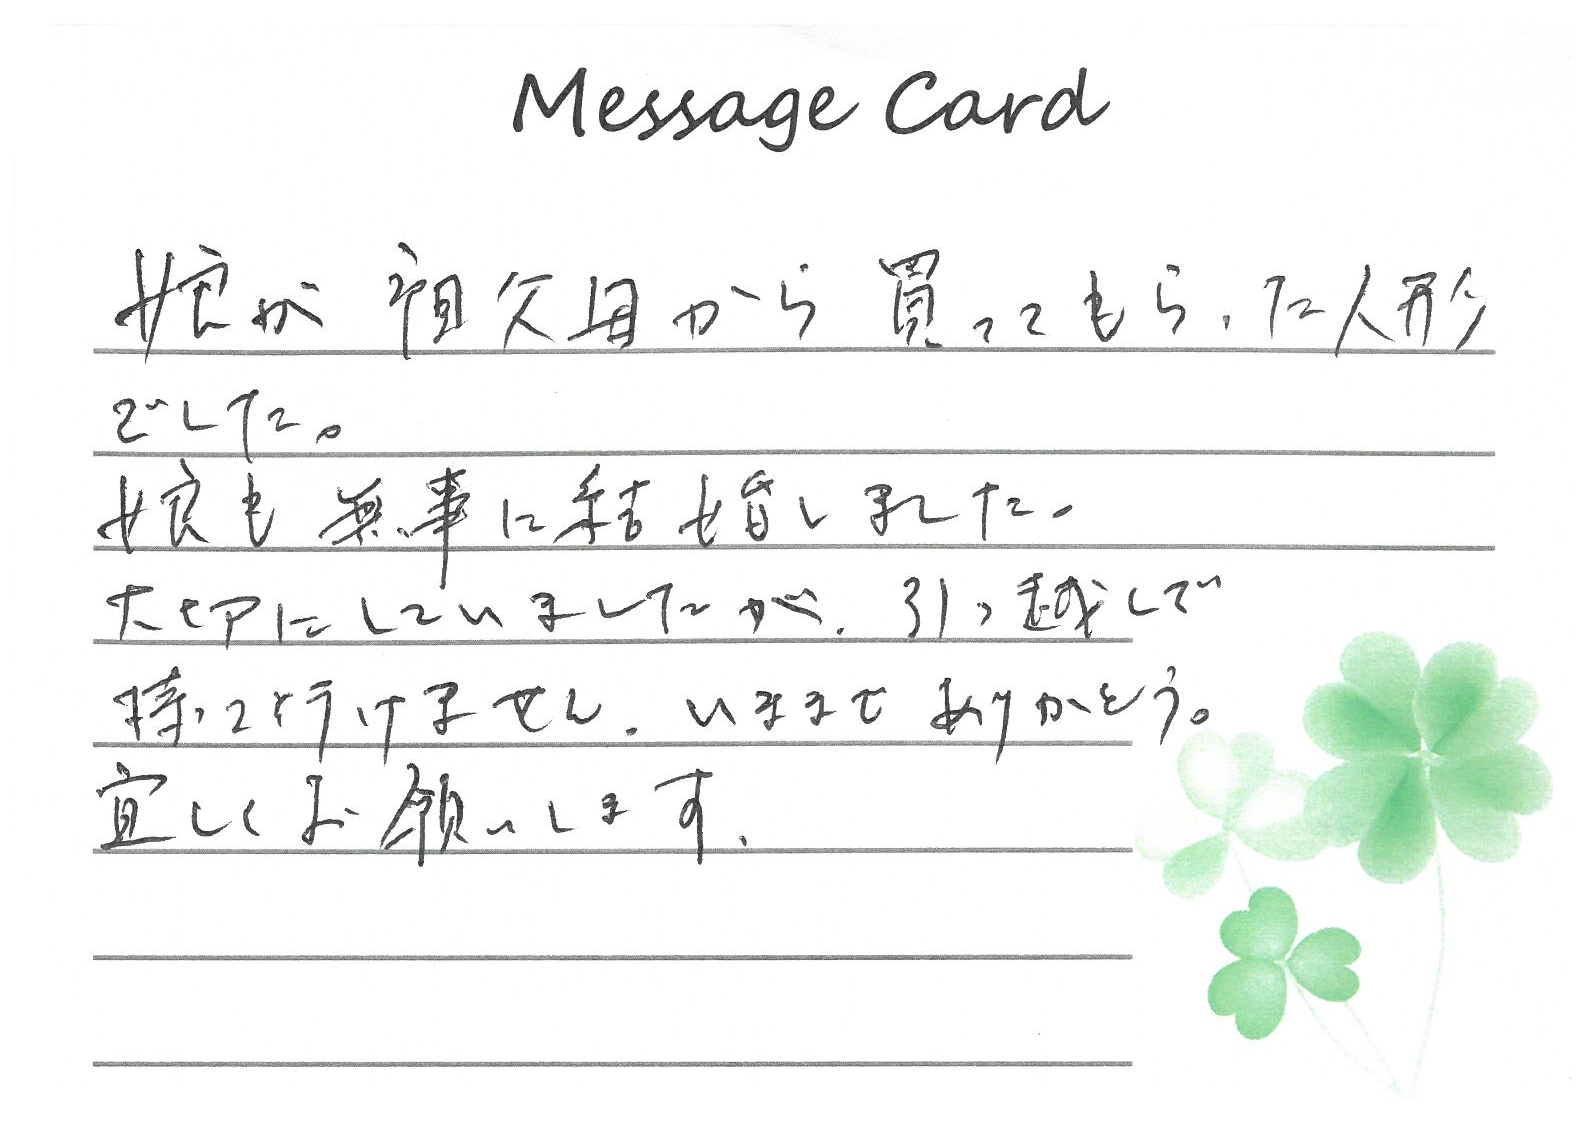 Message Card
娘が祖父母から買ってもらった人形
でした。
娘も無事に結婚しました。
大切にしていましたが、引っ越しで
持って行けません。いままでありがとう。
宜しくお願いします。